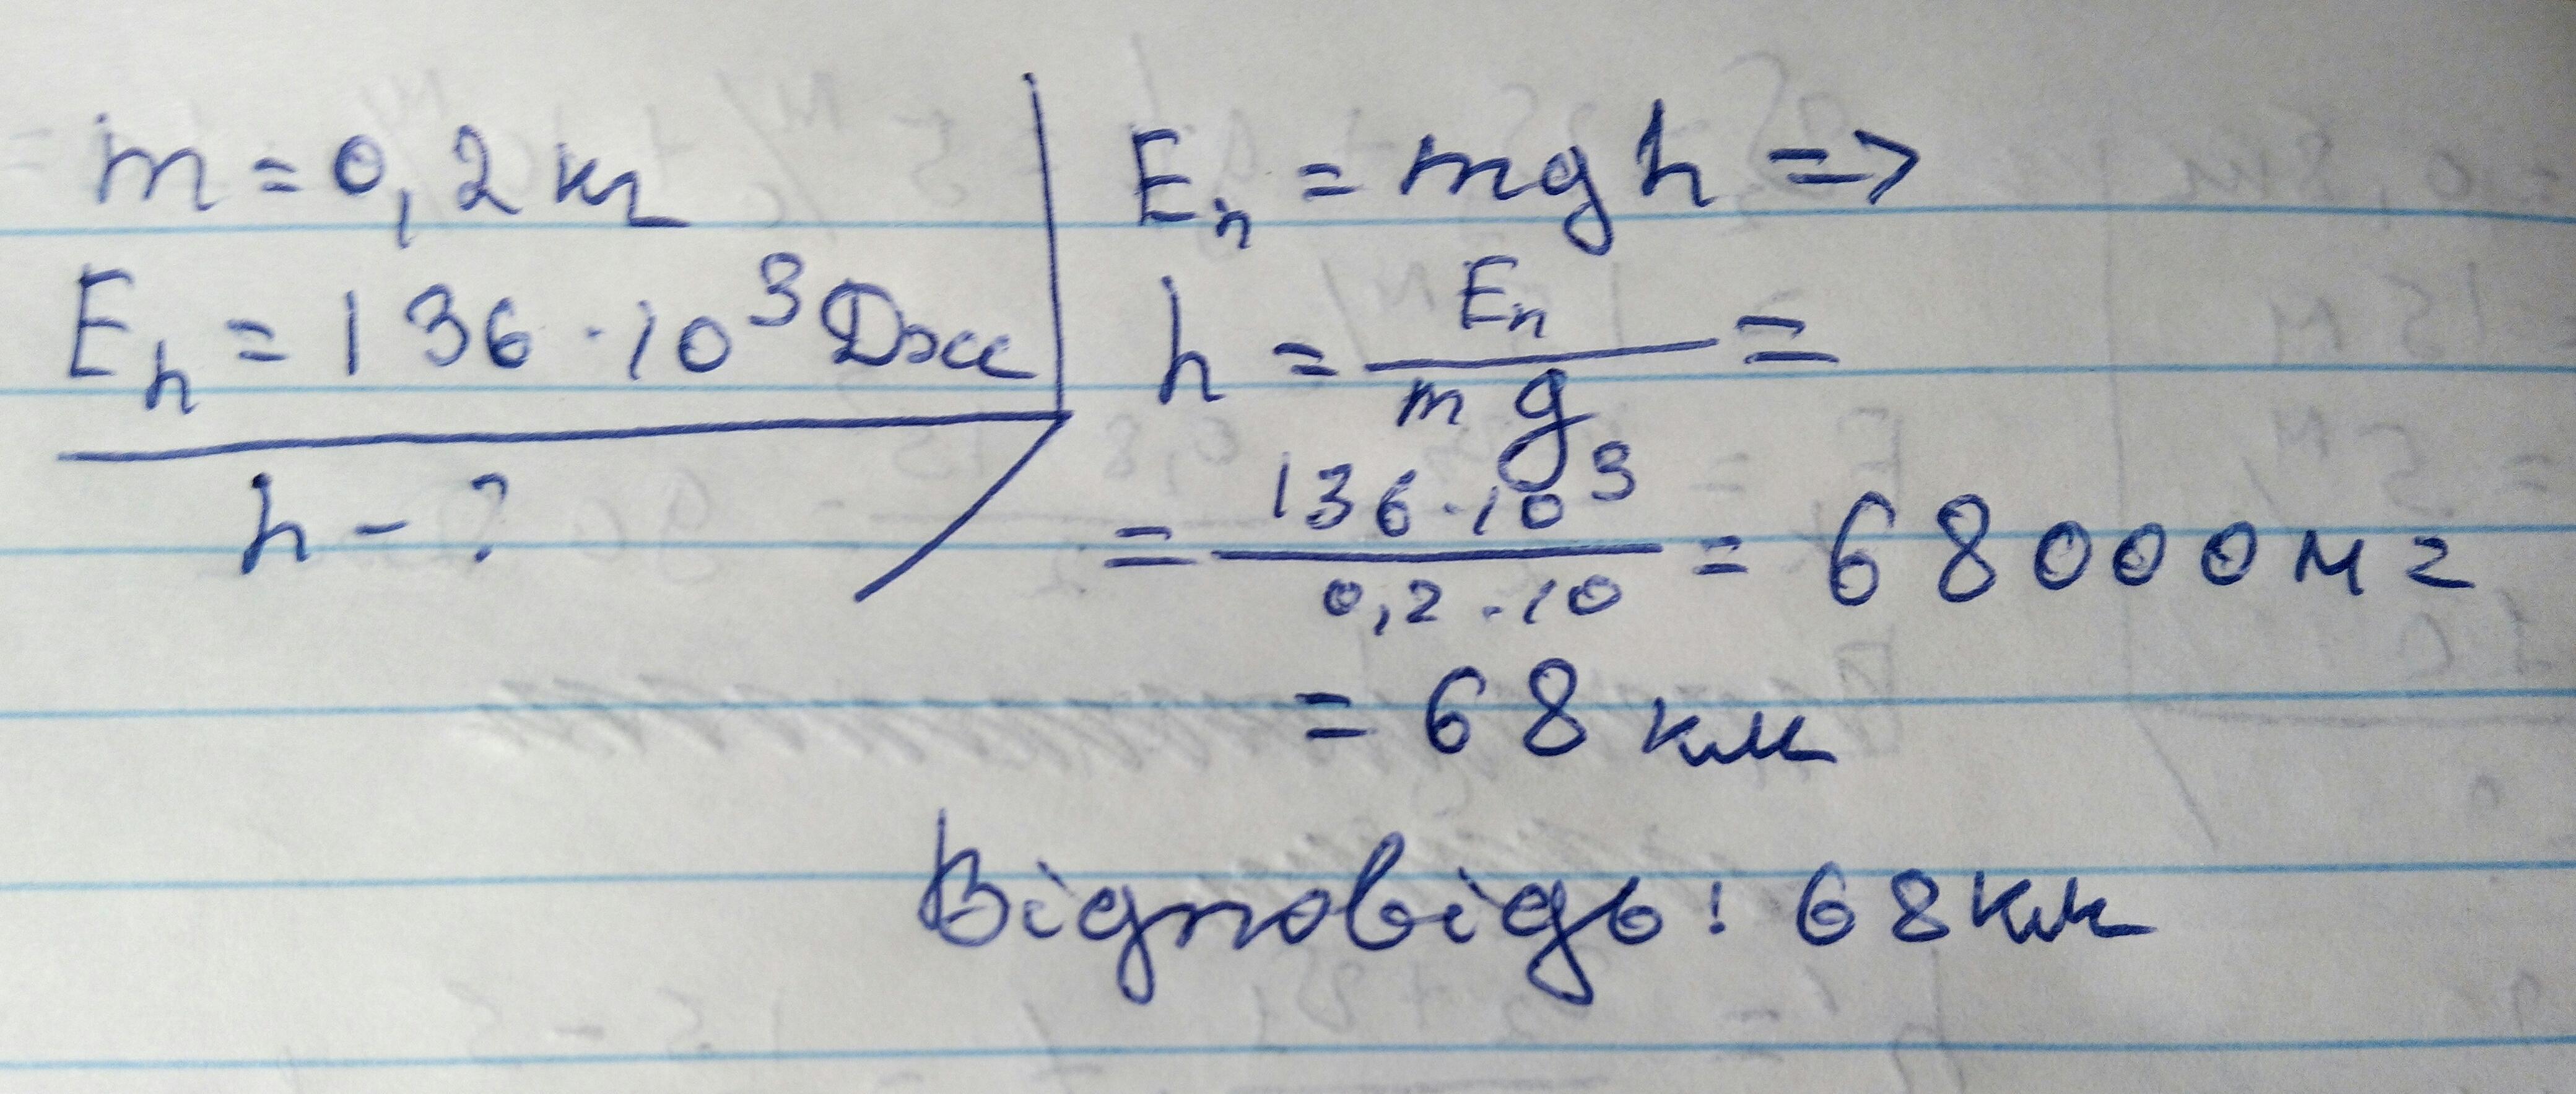 m = 0,2 кг
Eп = 136 · 10³ Дж
h - ?
Eп = mgh =>
h = Eп / mg =
= 136 · 10³ / 0,2 · 10 = 68000 м =
= 68 км
Відповідь: 68 км